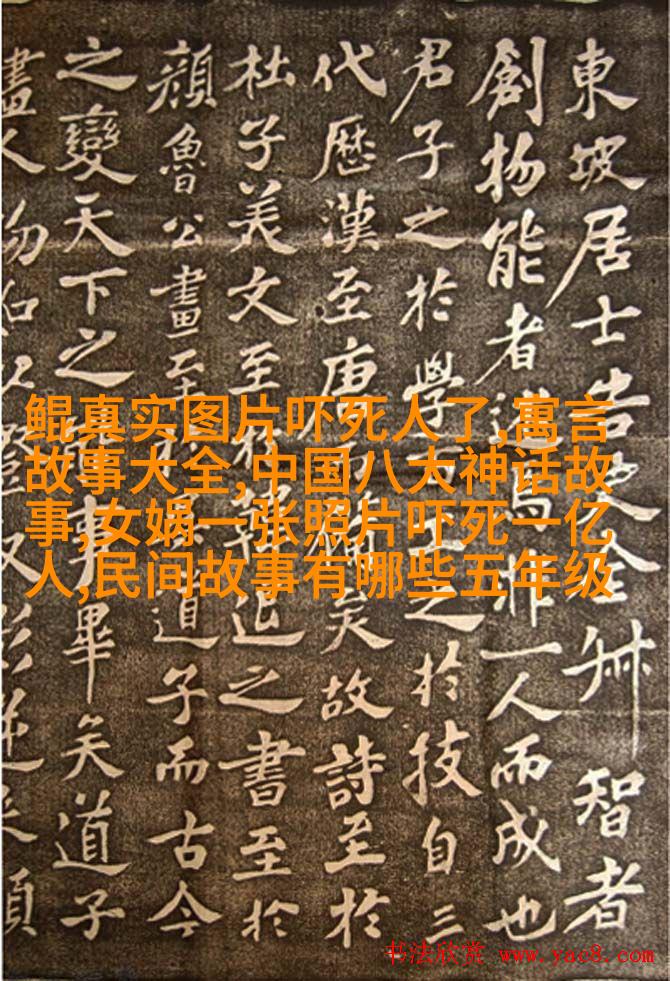 東坡居士告全叔智者
創物能者述焉非一人而成也
君子之於學之於技自三
代歷漢至唐矣故詩至於
杜子美文至退之書至於
顏魯公畫至道子而古今
之變天下之事畢矣道子
畫人物如以燈取影逆來順
鲲真实图片吓死人了,寓言
故事大全,中国八大神话故
事,女娲一张照片吓死一亿
人,民间故事有哪些五年级
书法欣赏 www.yac8.com